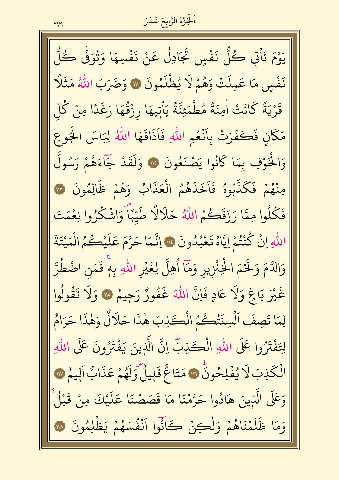 الجزء الرابع عشر
يَوْمَ تَأْتِي كُلُّ نَفْسٍ تُجَادِلُ عَنْ نَفْسِهَا وَتُوَفَّىٰ كُلُّ
نَفْسٍ مَا عَمِلَتْ وَهُمْ لَا يُظْلَمُونَ ۝ وَضَرَبَ اللهُ مَثَلًا
قَرْيَةً كَانَتْ اٰمِنَةً مُطْمَئِنَّةً يَأْتِيهَا رِزْقُهَا رَغَدًا مِنْ كُلِّ
مَكَانٍ فَكَفَرَتْ بِاَنْعُمِ اللهِ فَاَذَاقَهَا اللهُ لِبَاسَ الْجُوعِ
وَالْخَوْفِ بِمَا كَانُوا يَصْنَعُونَ ۝ وَلَقَدْ جَاءَهُمْ رَسُولٌ
مِنْهُمْ فَكَذَّبُوهُ فَاَخَذَهُمُ الْعَذَابُ وَهُمْ ظَالِمُونَ ۝
فَكُلُوا مِمَّا رَزَقَكُمُ اللهُ حَلَالًا طَيِّبًا وَاشْكُرُوا نِعْمَتَ
اللهِ اِنْ كُنْتُمْ اِيَّاهُ تَعْبُدُونَ ۝ اِنَّمَا حَرَّمَ عَلَيْكُمُ الْمَيْتَةَ
وَالدَّمَ وَلَحْمَ الْخِنْزِيرِ وَمَا اُهِلَّ لِغَيْرِ اللهِ بِهِ فَمَنِ اضْطُرَّ
غَيْرَ بَاغٍ وَلَا عَادٍ فَاِنَّ اللهَ غَفُورٌ رَحِيمٌ ۝ وَلَا تَقُولُوا
لِمَا تَصِفُ اَلْسِنَتُكُمُ الْكَذِبَ هٰذَا حَلَالٌ وَهٰذَا حَرَامٌ
لِتَفْتَرُوا عَلَى اللهِ الْكَذِبَ اِنَّ الَّذِينَ يَفْتَرُونَ عَلَى اللهِ
الْكَذِبَ لَا يُفْلِحُونَ ۝ مَتَاعٌ قَلِيلٌ وَلَهُمْ عَذَابٌ اَلِيمٌ ۝
وَعَلَى الَّذِينَ هَادُوا حَرَّمْنَا مَا قَصَصْنَا عَلَيْكَ مِنْ قَبْلُ
وَمَا ظَلَمْنَاهُمْ وَلٰكِنْ كَانُوا اَنْفُسَهُمْ يَظْلِمُونَ ۝